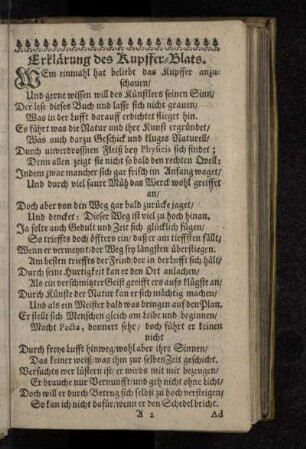 Erklärung des Kupffer-Blats.
WEm einmahl hat beliebt das Kupffer anzu-
schauen/
Und gerne wissen will des Künstlers seinen Sinn/
Der lese dieses Buch und lasse sich nicht grauen/
Was in der Lufft darauff erdichtet flieget hin.
Es führt was die Natur und ihre Kunst ergründet/
Was auch darzu Geschick und kluges Naturell/
Durch unverdrossnen Fleiß bey Physicis sich findet;
Denn allen zeigt sie nicht so bald den rechten Qvell;
Indem zwar mancher sich gar frisch im Anfang waget/
Und durch viel saure Müh das Werck wohl greiffet
an/
Doch aber von den Weg gar bald zurücke jaget/
Und dencket: Dieser Weg ist viel zu hoch hinan.
Ja solte auch Gedult und Zeit sich glücklich fügen/
So trieffts doch öffters ein/ daß er am tieffsten fällt/
Wenn er vermeynt/ der Weg sey längsten überstiegen.
Am besten triffts der Feind/ der in der Lufft sich hält/
Durch seine Hurtigkeit kan er den Ort anlachen/
Als ein verschmitzter Geist greifft ers auffs klügste an/
Durch Künste der Natur kan er sich mächtig machen/
Und als ein Meister bald was bringen auf den Plan.
Er stellt sich Menschen gleich am Leibe und beginnen/
Macht Pacta, donnert sehr/ doch führt er keinen
nicht
Durch freye Lufft hinweg/ wohl aber ihre Sinnen/
Das keiner weiß/ was ihm zur selben Zeit geschicht.
Versuchts wer lüstern ist/ er wirds mit mir bezeugen/
Er brauche nur Vernunfft/ und geh nicht ohne Licht/
Doch will er durch Betrug sich selbst zu hoch versteigen/
So kan ich nicht dafür/ wenn er den Schedel bricht.
A 2 Ad